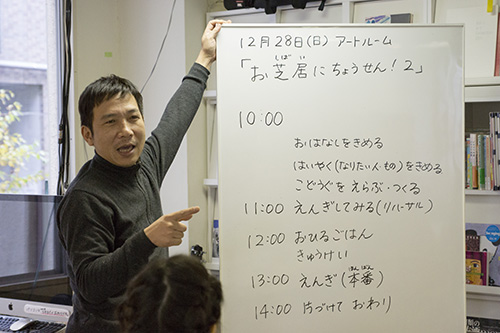 12月28日(日) アートルーム
「お芝居にちょうせん!2」
しば い
10:00
おはなしをきめる
はいやく(なりたい人・もの)をきめる
こどうぐを えらぶ・つくる
11:00 えんぎしてみる(リハーサル)
12:00 おひるごはん
きゅうけい
13:00 えんぎ(本番)
ほんばん
14:00 片づけて おわり